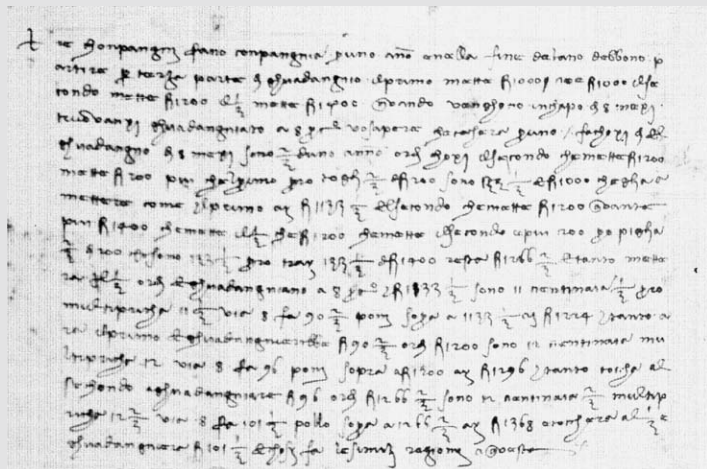 re chonpangni fano conpangnia p uno ano e nella fine delano debbono p
artire p terza parte el ghuadangnio el primo mette fi 1000 el se
condo mette fi 1200 el 1/3 mette fi 1400 quando venghono in chapo de 8 mexi
truovanxi ghuadangniato a 8 p c° vo sapere che tochera p uno fa choxi el
ghuadangno de 8 mexi sono 2/3 duno anno ora choxi el secondo che mette fi 1200
mette fi 200 piu chel primo pro togli 2/3 di fi 200 sono 133 1/3 e fi 1000 che gli a
mettera come el primo ai fi 1133 1/3 el secondo che mette fi 1200 quante
piu fi 1400 che mette el 1/3 che fi 1200 che mette el secondo e piu 200 po piglia
2/3 di 200 che sono 133 1/3 pro trai 133 1/3 di fi 1400 resta fi 1266 2/3 e tanto mette
ra el 1/3 ora e ghuadangniano a 8 p c° fi 1133 1/3 sono 11 centinaia 1/3 pro
multipricha 11 1/3 via 8 fa 90 2/3 poni sopra a 1133 1/3 ai fi 1224 tanto a
ra el primo e ghuadangnierebbe fi 90 2/3 ora fi 1200 sono 12 centinaia mu
ltipricha 12 via 8 fa 96 poni sopra a fi 1200 ai fi 1296 tanto toccha al
sechondo a ghuadangniare fi 96 ora fi 1266 2/3 sono 12 centinaia 2/3 multip
richa 12 2/3 via 8 fa 101 1/3 pollo sopra a 1266 2/3 ai fi 1368 e tochera al 1/3 e
ghuadangniera fi 101 1/3 e choxi fa le simili ragioni a questa